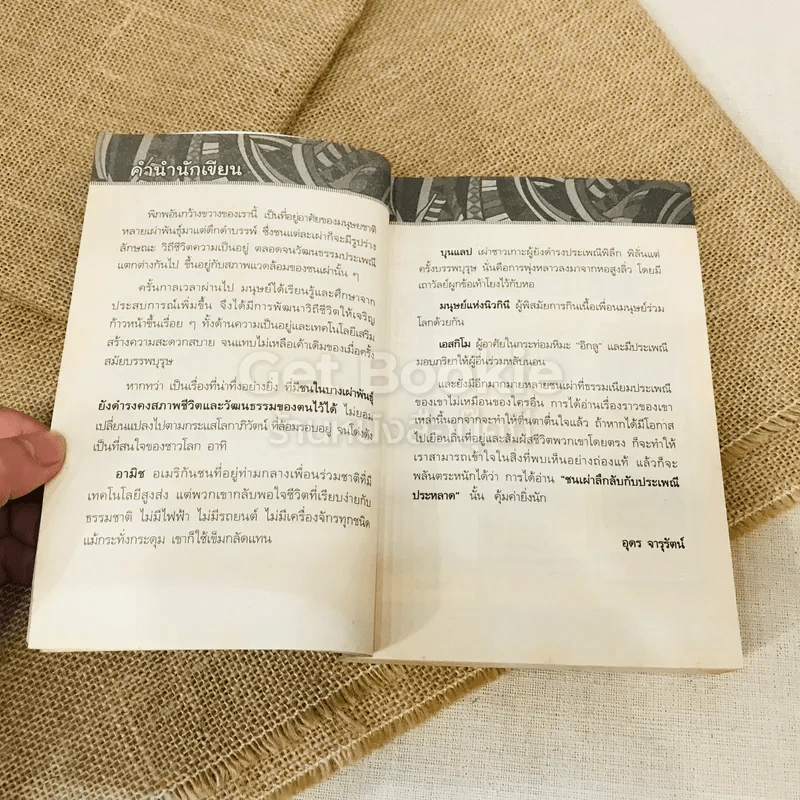 คำนำนักเขียน
พิภพอันกว้างขวางของเรานี้ เป็นที่อยู่อาศัยของมนุษยชาติ
หลายเผ่าพันธุ์มาแต่ดึกดำบรรพ์ ซึ่งชนแต่ละเผ่าก็จะมีรูปร่าง
ลักษณะ วิถีชีวิตความเป็นอยู่ ตลอดจนวัฒนธรรมประเพณี
แตกต่างกันไป ขึ้นอยู่กับสภาพแวดล้อมของชนเผ่านั้น ๆ
ครั้นกาลเวลาผ่านไป มนุษย์ได้เรียนรู้และศึกษาจาก
ประสบการณ์เพิ่มขึ้น จึงได้มีการพัฒนาวิถีชีวิตให้เจริญ
ก้าวหน้าขึ้นเรื่อย ๆ ทั้งด้านความเป็นอยู่และเทคโนโลยีเสริม
สร้างความสะดวกสบาย จนแทบไม่เหลือเค้าเดิมของเมื่อครั้ง
สมัยบรรพบุรุษ
หากทว่า เป็นเรื่องที่น่าทึ่งอย่างยิ่ง ที่มีชนในบางเผ่าพันธุ์
ยังดำรงคงสภาพชีวิตและวัฒนธรรมของตนไว้ได้ ไม่ยอม
เปลี่ยนแปลงไปตามกระแสโลกาภิวัตน์ ที่ล้อมรอบอยู่ จนโด่งดัง
เป็นที่สนใจของชาวโลก อาทิ
อามิช อเมริกันชนที่อยู่ท่ามกลางเพื่อนร่วมชาติที่มี
เทคโนโลยีสูงส่ง แต่พวกเขากลับพอใจชีวิตที่เรียบง่ายกับ
ธรรมชาติ ไม่มีไฟฟ้า ไม่มีรถยนต์ ไม่มีเครื่องจักรทุกชนิด
แม้กระทั่งกระดุม เขาก็ใช้เข็มกลัดแทน
บุนแลป เผ่าชาวเกาะผู้ยังดำรงประเพณีพิลึก พิลั่นแต่
ครั้งบรรพบุรุษ นั่นคือการพุ่งหลาวลงมาจากหอสูงลิ่ว โดยมี
เถาวัลย์ผูกข้อเท้าโยงไว้กับหอ
มนุษย์แห่งนิวกินี ผู้พิสมัยการกินเนื้อเพื่อนมนุษย์ร่วม
โลกด้วยกัน
เอสกิโม ผู้อาศัยในกระท่อมหิมะ "อิกลู" และมีประเพณี
มอบภริยาให้ผู้อื่นร่วมหลับนอน
และยังมีอีกมากมายหลายชนเผ่าที่ธรรมเนียมประเพณี
ของเขาไม่เหมือนของใครอื่น การได้อ่านเรื่องราวของเขา
เหล่านี้นอกจากจะทำให้ตื่นตาตื่นใจแล้ว ถ้าหากได้มีโอกาส
ไปเยือนถิ่นที่อยู่และสัมผัสชีวิตพวกเขาโดยตรง ก็จะทำให้
เราสามารถเข้าใจในสิ่งที่พบเห็นอย่างถ่องแท้ แล้วก็จะ
พลันตระหนักได้ว่า การได้อ่าน "ชนเผ่าลึกลับกับประเพณี
ประหลาด" นั้น คุ้มค่ายิ่งนัก
อุดร จารุรัตน์
Get Bookie